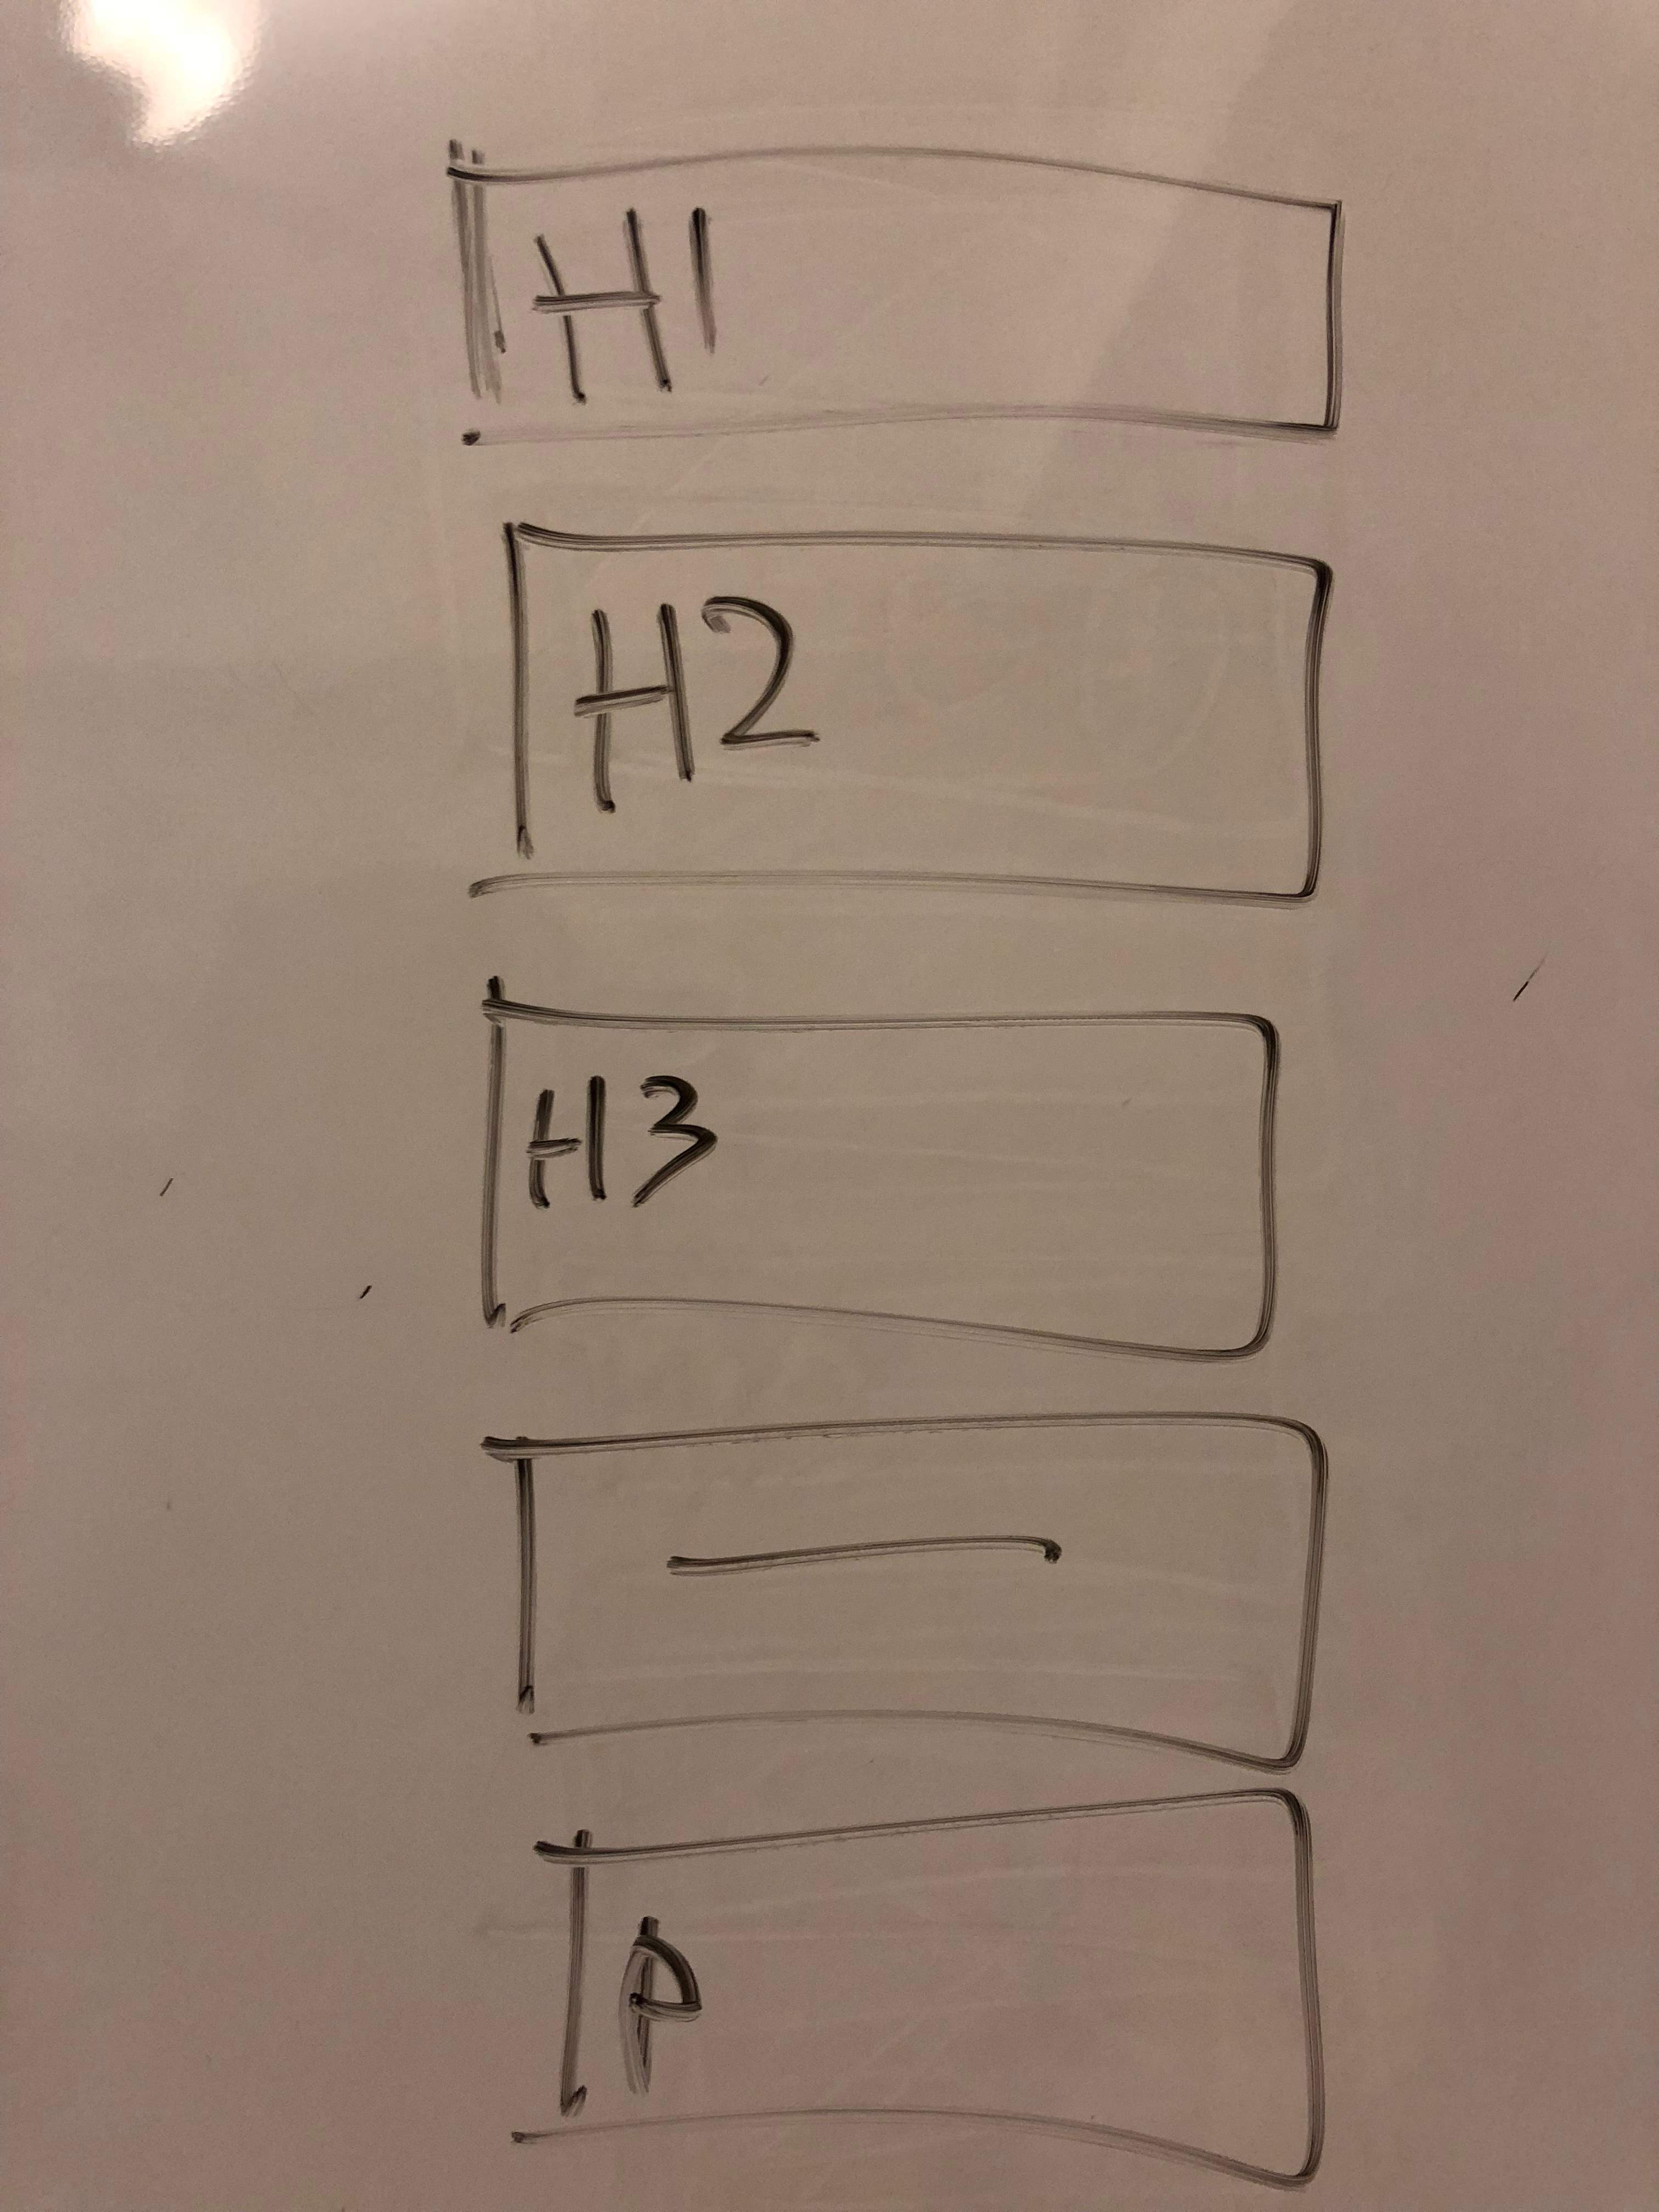 H1
H2
H3
—
P